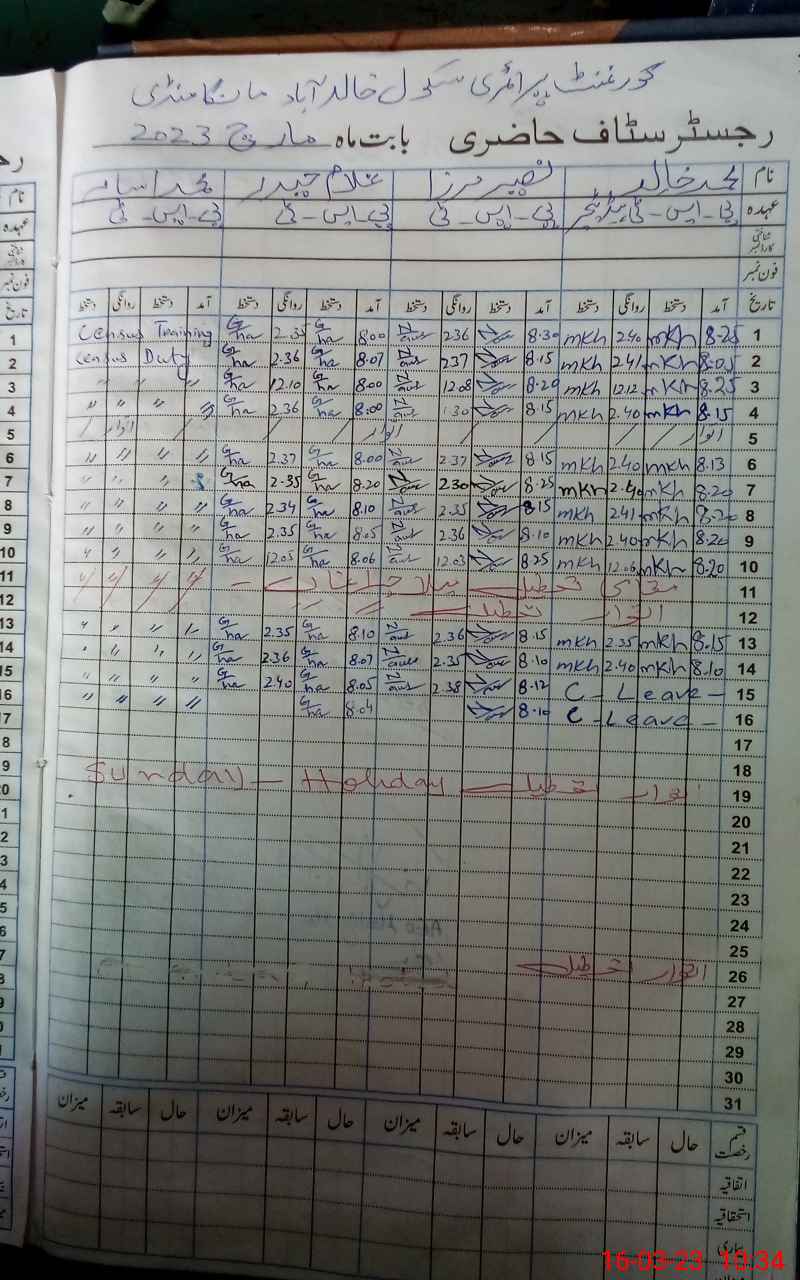 گورنمنٹ پرائمری سکول خالد آباد مانگا منڈی
رجسٹر سٹاف حاضری بابت ماہ مارچ 2023
نام محمد خالد نصیر مرزا غلام حیدر
عہدہ پی۔ایس۔ٹی ہیڈ ٹیچر پی۔ایس۔ٹی پی۔ایس۔ٹی پی۔ایس۔ٹی
شناختی کارڈ نمبر
فون نمبر
تاریخ آمد دستخط روانگی دستخط آمد دستخط روانگی دستخط آمد دستخط روانگی دستخط آمد دستخط روانگی دستخط
1 8.25 mkh 2.40 mkh 8.30 2.36 8.00 G/ha 2.35 G/ha Census Training
2 8.05 mkh 2.41 mkh 8.15 2.37 8.07 G/ha 2.36 G/ha Census Duty
3 8.25 mkh 12.12 mkh 8.20 12.08 8.00 G/ha 12.10 G/ha " " " "
4 8.15 mkh 2.40 mkh 8.15 8.00 G/ha 2.36 G/ha " " " "
5 اتوار / / اتوار / / / اتوار /
6 8.13 mkh 2.40 mkh 8.15 2.37 8.00 G/ha 2.37 G/ha " " " "
7 8.20 mkh 2.40 mkh 8.25 2.30 8.20 G/ha 2.35 G/ha " " "
8 8.20 mkh 2.41 mkh 8.15 2.35 8.10 G/ha 2.34 G/ha " " " "
9 8.20 mkh 2.40 mkh 8.10 2.36 8.05 G/ha 2.35 G/ha " " " "
10 8.20 mkh 12.06 mkh 8.25 12.03 8.06 G/ha 12.05 G/ha " " " "
11 مقامی تعطیل میلا چراغاں -
12 اتوار تعطیل
13 8.15 mkh 2.35 mkh 8.15 2.36 8.10 G/ha 2.35 G/ha " " " "
14 8.10 mkh 2.40 mkh 8.10 2.35 8.07 G/ha 2.36 G/ha " " " "
15 C - Leave - 8.12 2.38 8.05 G/ha 2.40 G/ha " " " "
16 C - Leave - 8.10 8.04 G/ha " " " "
17
18
19 اتوار تعطیل Sunday - Holiday
20
21
22
23
24
25
26 اتوار تعطیل
27
28
29
30
31
قسم رخصت حال سابقہ میزان حال سابقہ میزان حال سابقہ میزان حال سابقہ میزان
اتفاقیہ
استحقاقیہ
بیماری
16-03-23 10:34